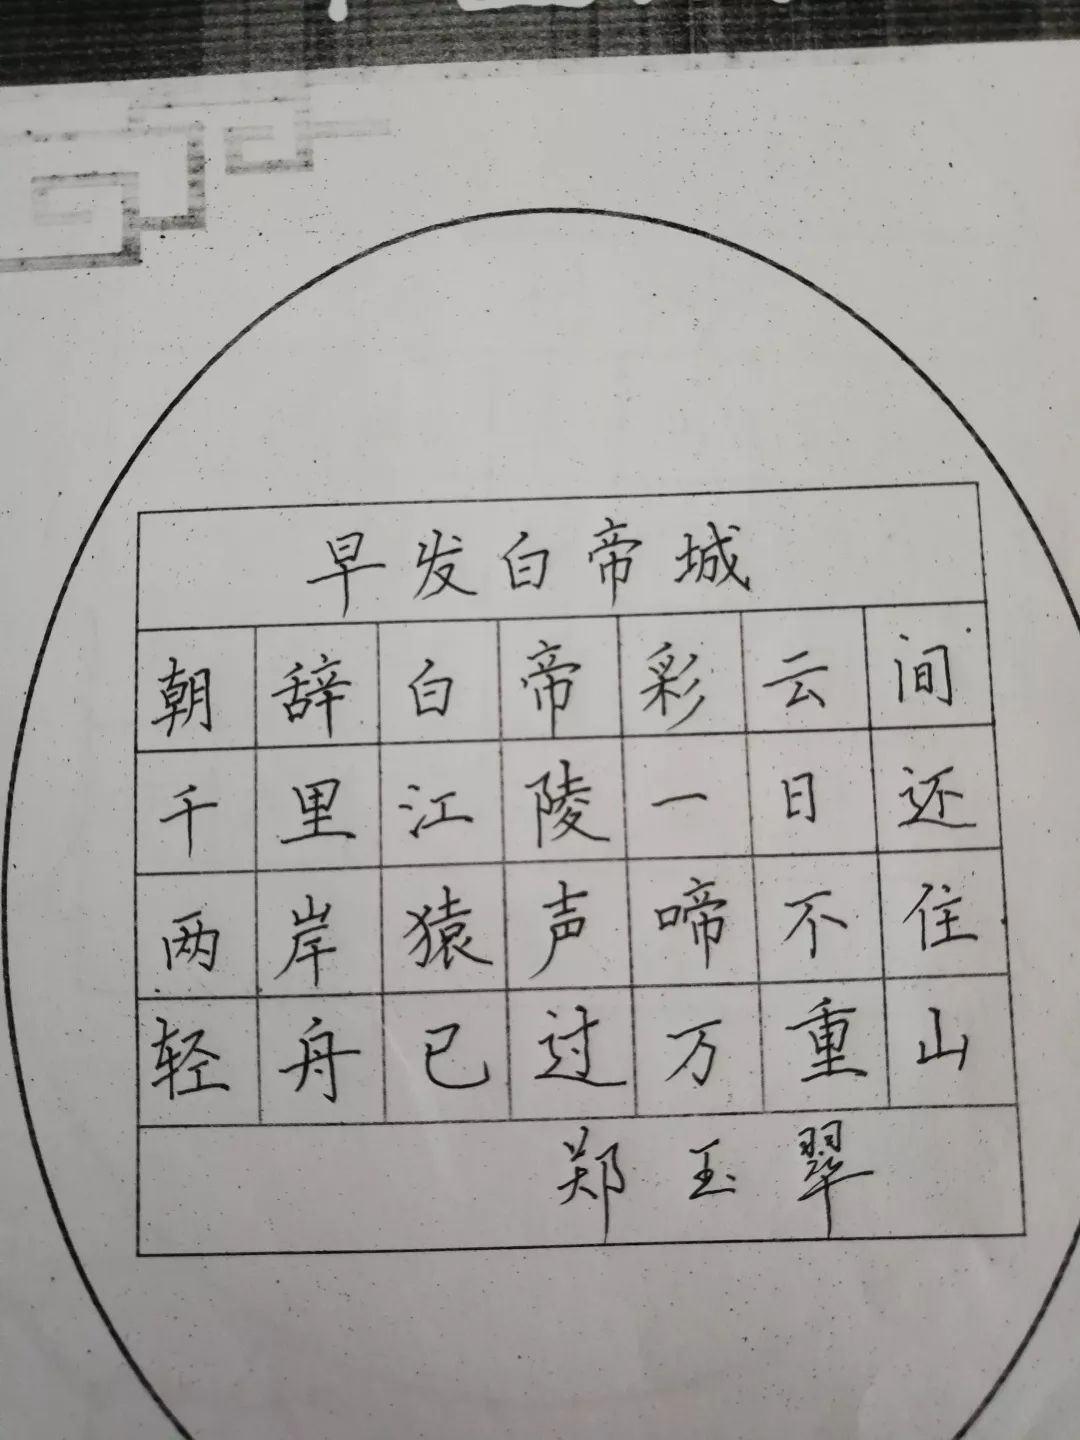 早发白帝城
朝辞白帝彩云间
千里江陵一日还
两岸猿声啼不住
轻舟已过万重山
郑玉翠